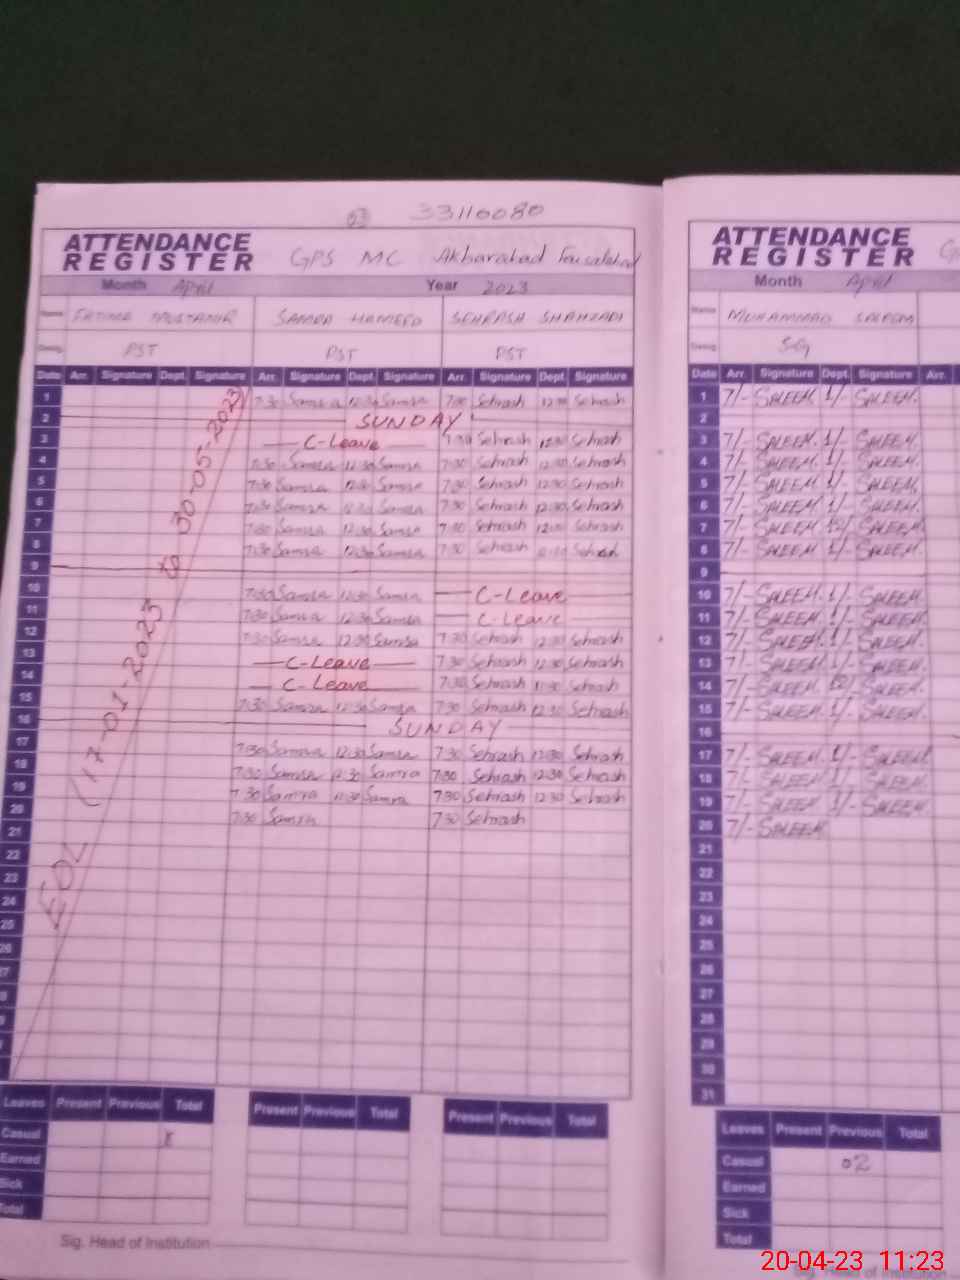 03 33110080
ATTENDANCE REGISTER GPS MC Akbarabad Faisalabad
Month April Year 2023
Name FATIMA MUSTANIR SAMRA HAMEED SEHRASH SHAHZADI
Desig. PST PST PST
Date Arr. Signature Dept. Signature Arr. Signature Dept. Signature Arr. Signature Dept. Signature
EOL (17-01-2023 to 30-05-2023
1 7:30 Samra 12:30 Samra 7:30 Sehrash 12:30 Sehrash
2 SUNDAY
3 C-Leave 7:30 Sehrash 12:30 Sehrash
4 7:30 Samra 12:30 Samra 7:30 Sehrash 12:30 Sehrash
5 7:30 Samra 12:30 Samra 7:30 Sehrash 12:30 Sehrash
6 7:30 Samra 12:30 Samra 7:30 Sehrash 12:30 Sehrash
7 7:30 Samra 12:30 Samra 7:30 Sehrash Sehrash
8 7:30 Samra 12:30 Samra 7:30 Sehrash Sehrash
9
10 7:30 Samra 12:30 Samra C-Leave
11 7:30 Samra 12:30 Samra C-Leave
12 7:30 Samra 12:30 Samra 7:30 Sehrash 12:30 Sehrash
13 C-Leave 7:30 Sehrash 12:30 Sehrash
14 C-Leave 7:30 Sehrash 11:30 Sehrash
15 7:30 Samra 12:30 Samra 7:30 Sehrash 12:30 Sehrash
16 SUNDAY
17 7:30 Samra 12:30 Samra 7:30 Sehrash 12:30 Sehrash
18 7:30 Samra 12:30 Samra 7:30 Sehrash 12:30 Sehrash
19 7:30 Samra 12:30 Samra 7:30 Sehrash 12:30 Sehrash
20 7:30 Samra 7:30 Sehrash
21
22
23
24
25
26
Leaves Present Previous Total Present Previous Total Present Previous Total
Casual
Earned
Sick
Total
Sig. Head of Institution
ATTENDANCE REGISTER
Month April
Name MUHAMMAD SALEEM
Desig. S.G
Date Arr. Signature Dept. Signature Arr.
1 7/- SALEEM. 1/- SALEEM.
2
3 7/- SALEEM. 1/- SALEEM.
4 7/- SALEEM. 1/- SALEEM.
5 7/- SALEEM. 1/- SALEEM.
6 7/- SALEEM. 1/- SALEEM.
7 7/- SALEEM. 12/- SALEEM.
8 7/- SALEEM. 1/- SALEEM.
9
10 7/- SALEEM. 1/- SALEEM.
11 7/- SALEEM. 1/- SALEEM.
12 7/- SALEEM. 1/- SALEEM.
13 7/- SALEEM. 1/- SALEEM.
14 7/- SALEEM. 12/- SALEEM.
15 7/- SALEEM. 1/- SALEEM.
16
17 7/- SALEEM. 1/- SALEEM.
18 7/- SALEEM. 1/- SALEEM.
19 7/- SALEEM. 1/- SALEEM.
20 7/- SALEEM.
21
22
23
24
25
26
27
28
29
30
31
Leaves Present Previous Total
Casual 02
Earned
Sick
Total
20-04-23 11:23